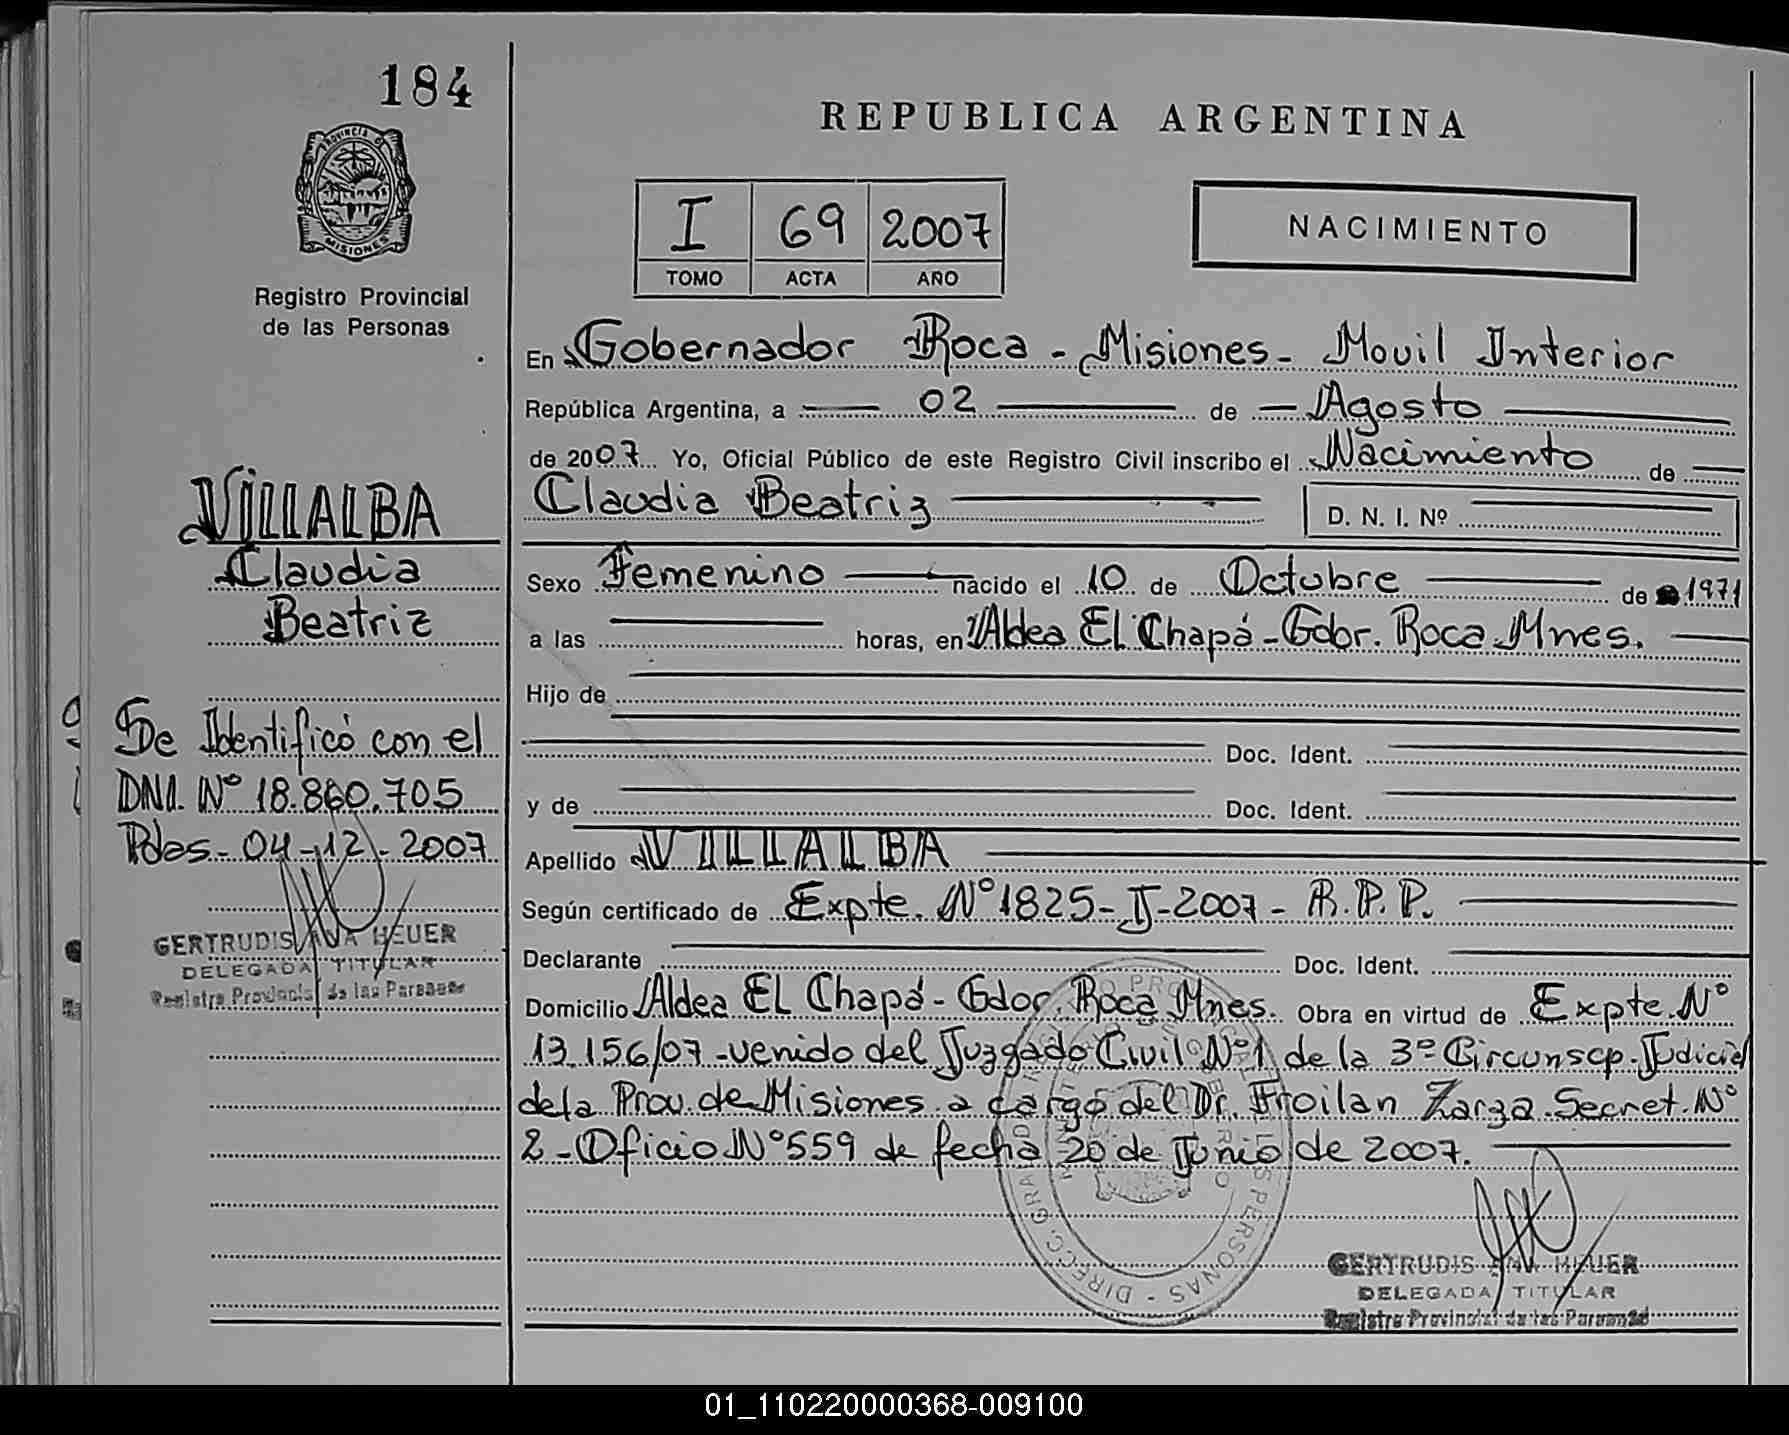 184
PROVINCIA D
MISIONES
Registro Provincial
de las Personas
REPUBLICA ARGENTINA
I 69 2007
TOMO ACTA AÑO
NACIMIENTO
En Gobernador Roca - Misiones - Movil Interior
República Argentina, a 02 de Agosto
de 2007 Yo, Oficial Público de este Registro Civil inscribo el Nacimiento de
Claudia Beatriz D. N. I. Nº
Sexo Femenino nacido el 10 de Octubre de 1971
a las horas, en Aldea El Chapá - Gdor. Roca Mnes.
Hijo de
Doc. Ident.
y de Doc. Ident.
Apellido VILLALBA
Según certificado de Expte. Nº 1825-J-2007 - R.P.P.
Declarante Doc. Ident.
Domicilio Aldea EL Chapá - Gdor. Roca Mnes. Obra en virtud de Expte. Nº
13.156/07 - venido del Juzgado Civil Nº 1 de la 3º Circunscp. Judicial
de la Prov. de Misiones a cargo del Dr. Froilan Zarza. Secret. Nº
2 - Oficio Nº 559 de fecha 20 de Junio de 2007.
GERTRUDIS ANA HEUER
DELEGADA TITULAR
Registro Provincial de las Personas
VILLALBA
Claudia
Beatriz
Se Identificó con el
DNI. Nº 18.860.705
Pdas. 04-12-2007
GERTRUDIS ANA HEUER
DELEGADA TITULAR
Registro Provincial de las Personas
PERSONAS - DIRECC. GRAL
01_110220000368-009100